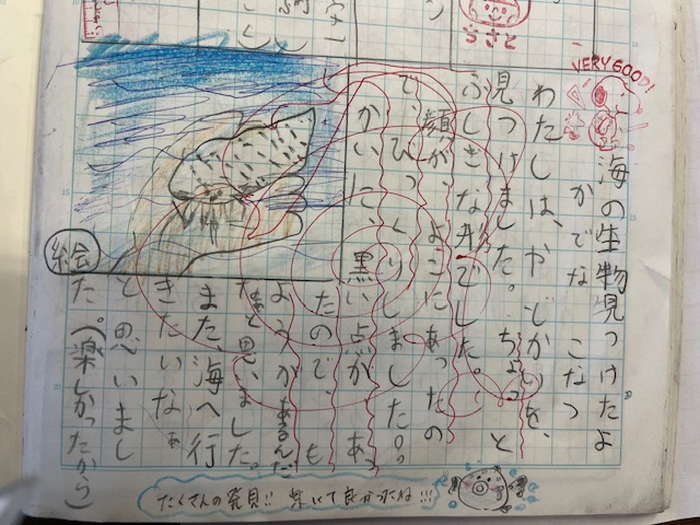 ちさと
VERY GOOD!
海の生物見つけたよ
かでな こなつ
わたしは、やどかりを、
見つけました。ちょっと
ふしぎな形でした。
顔が、よこにあったの
で、びっくりしました。
かいに、黒い点があ
たので、も
ようがあるんだ
なぁと思いました。
また、海へ行
きたいなぁ
と思いまし
た。(楽しかったから)
絵
たくさんの発見!! 良かったね!!!